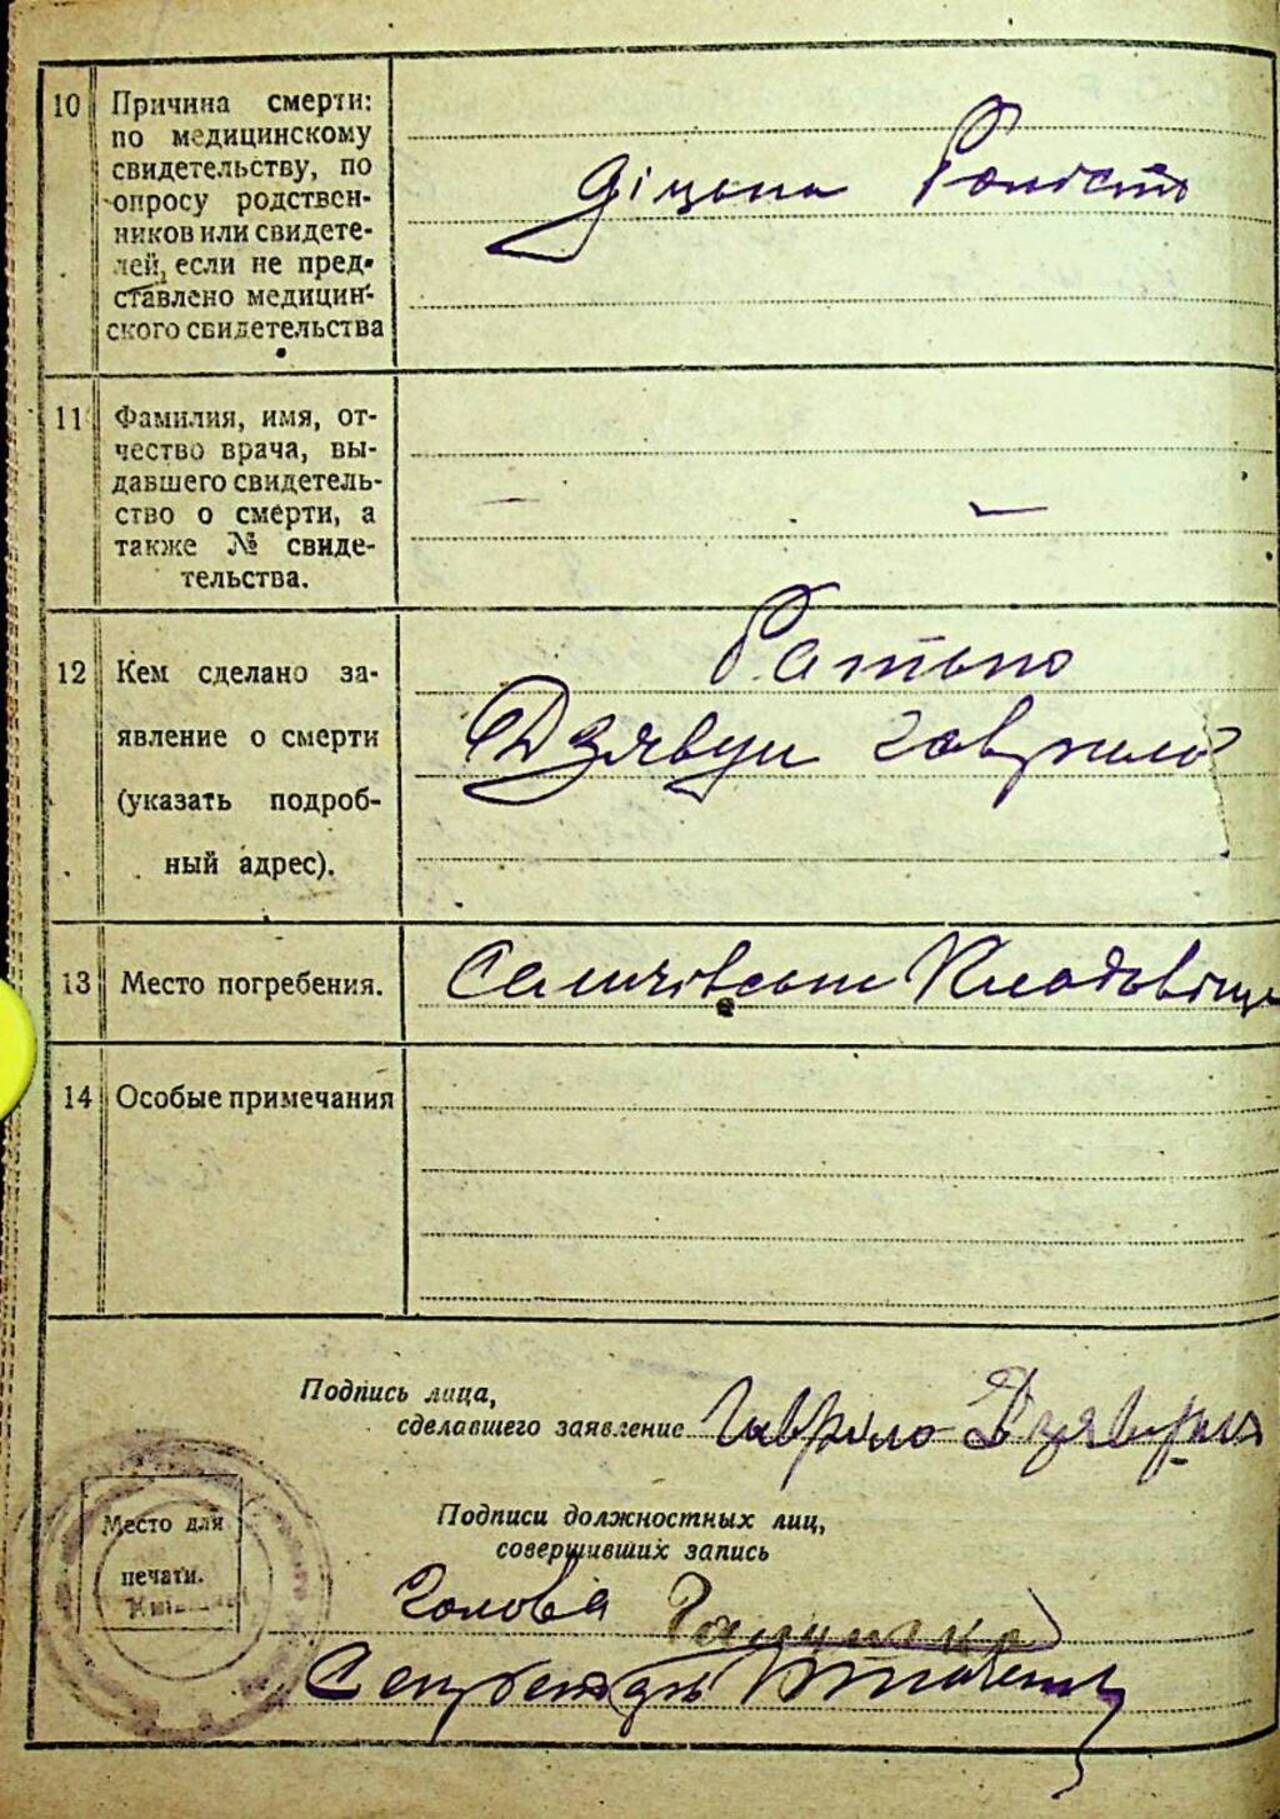 10 Причина смерти:
по медицинскому
свидетельству, по
опросу родствен-
ников или свидете-
лей, если не пред-
ставлено медицин-
ского свидетельства
11 Фамилия, имя, от-
чество врача, вы-
давшего свидетель-
ство о смерти, а
также № свиде-
тельства.
12 Кем сделано за-
явление о смерти
(указать подроб-
ный адрес).
Батько
Дзявун Гаврило
13 Место погребения.
14 Особые примечания
Подпись лица,
сделавшего заявление Гаврило
Подписи должностных лиц,
совершивших запись
Место для
печати.
Голова
Секретарь